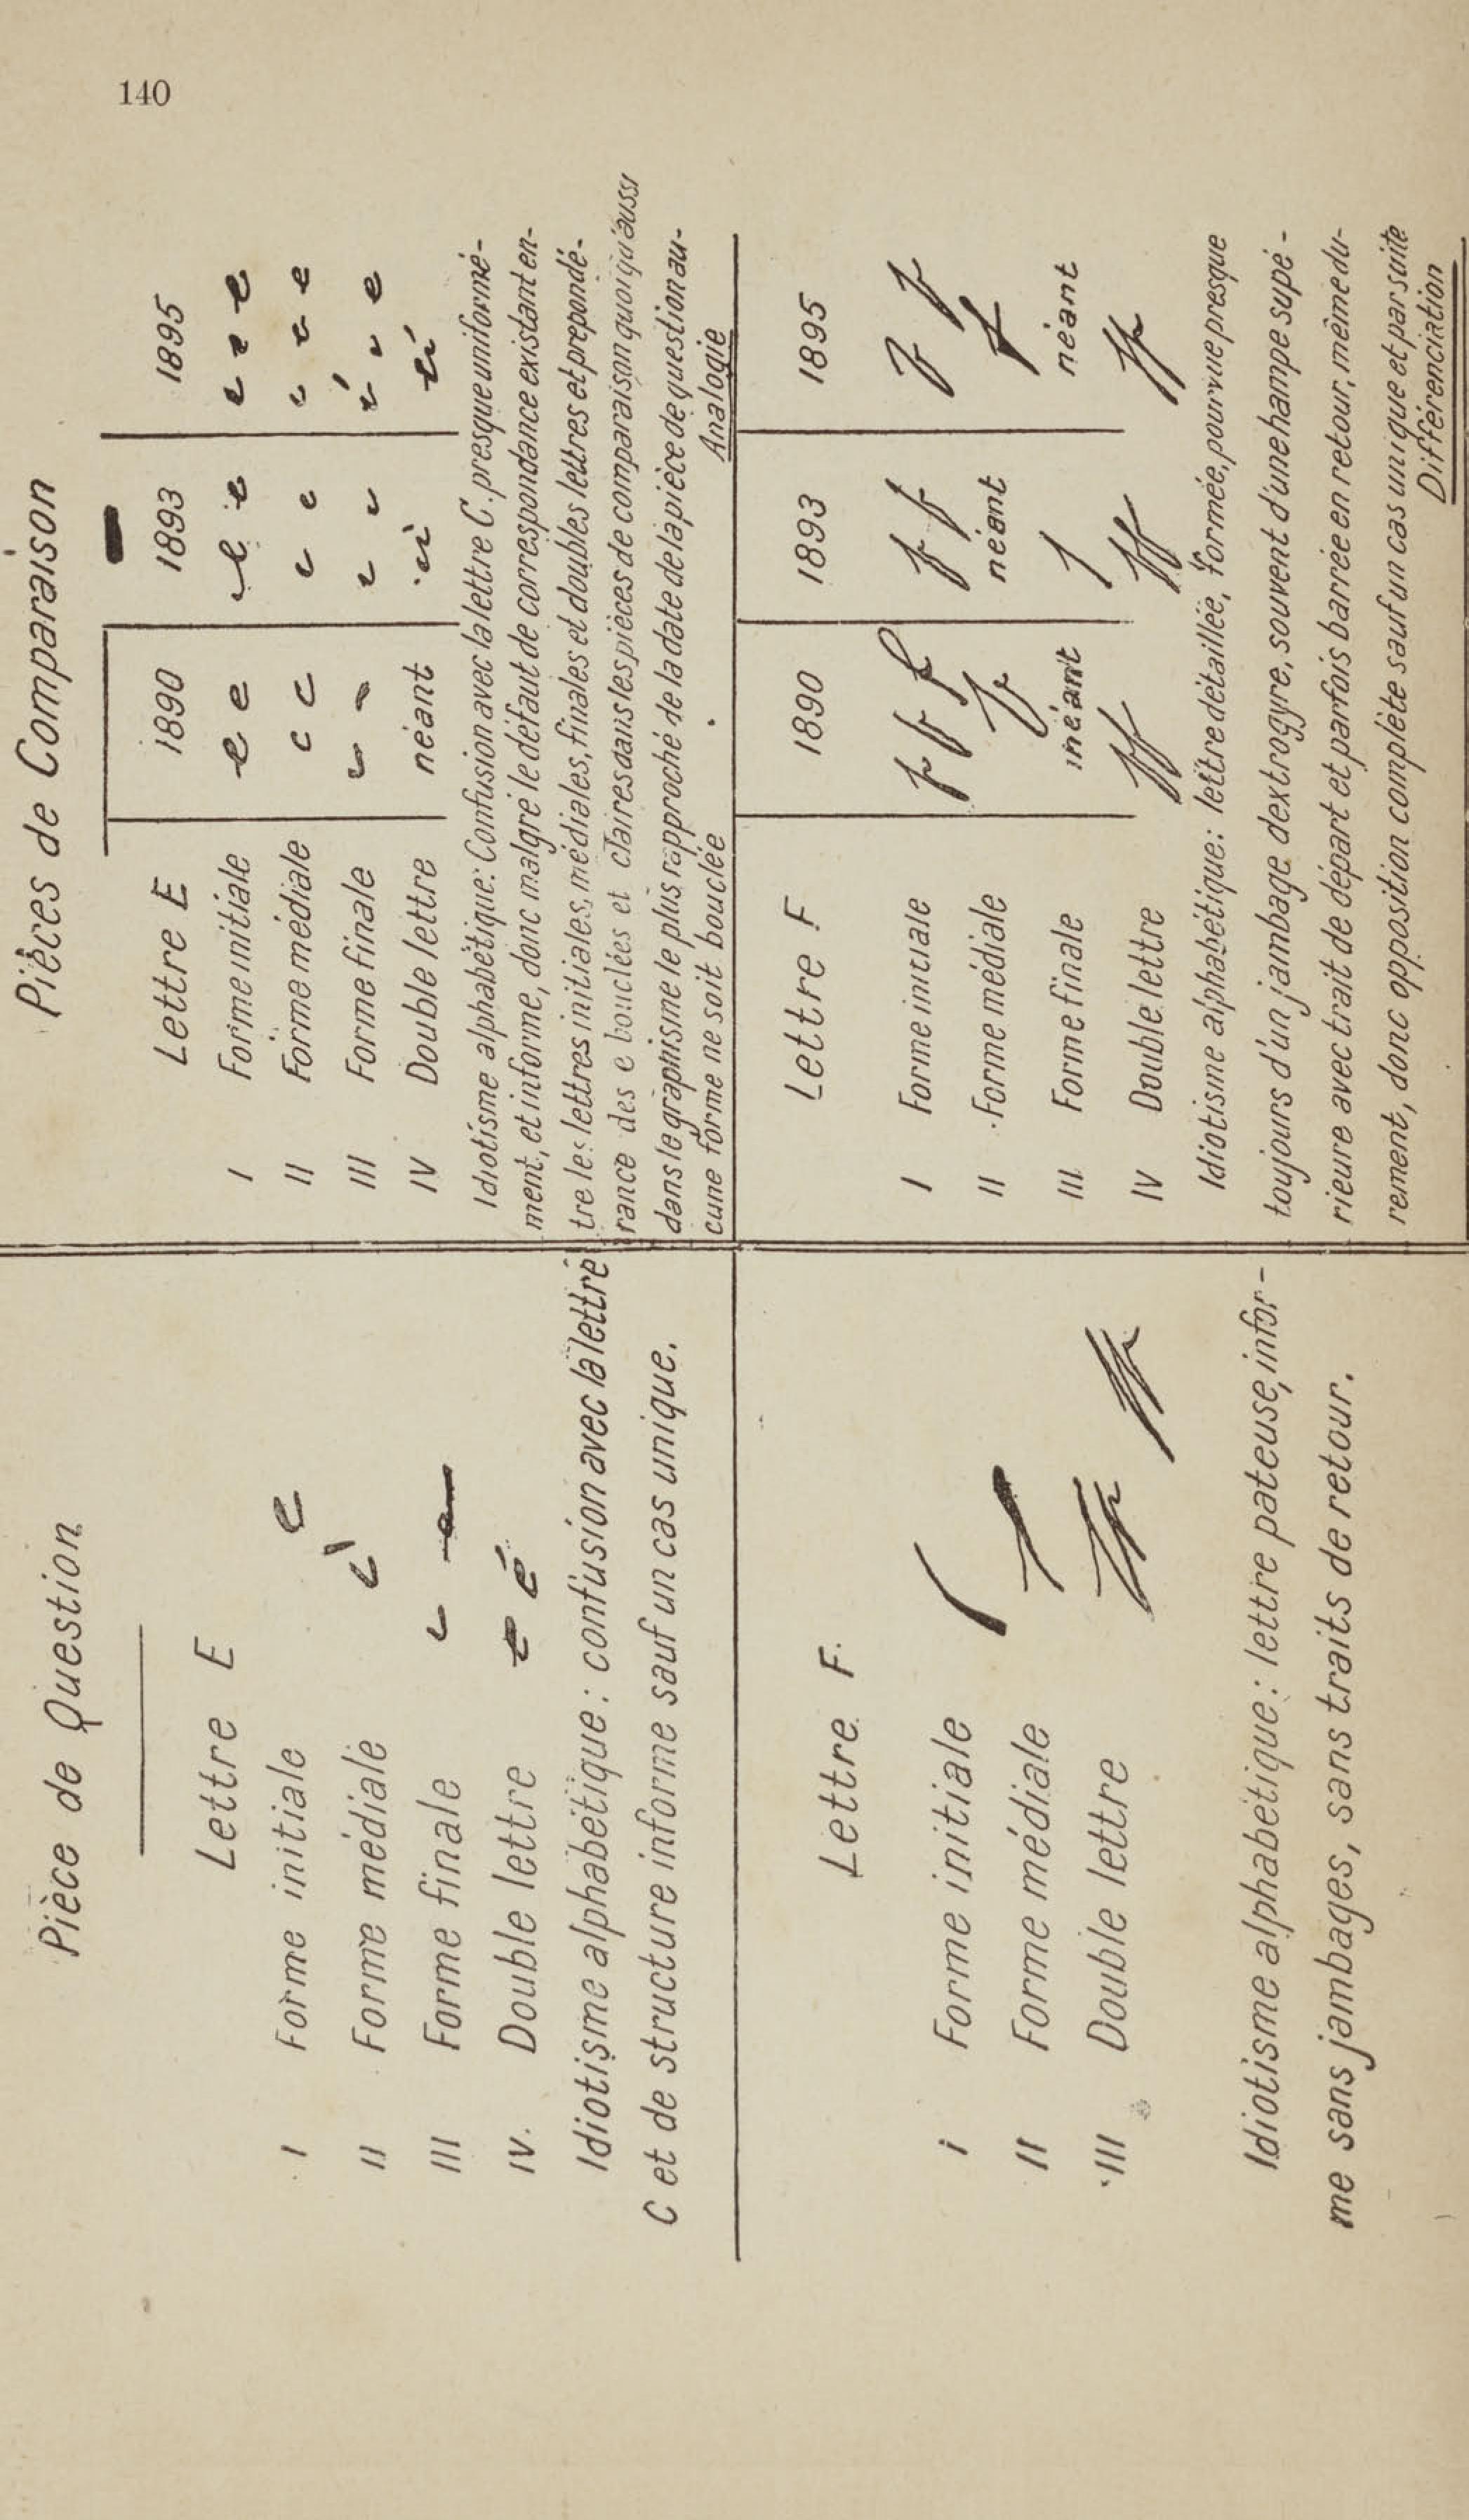 140
Pièce de Question
Lettre E
I Forme initiale e
II Forme médiale
III Forme finale
IV. Double lettre
Idiotisme alphabétique: confusion avec la lettre
C et de structure informe sauf un cas unique.
Lettre F.
I Forme initiale
II Forme médiale
III Double lettre
Idiotisme alphabétique: lettre pateuse, infor-
me sans jambages, sans traits de retour.
Pièces de Comparaison
Lettre E 1890 1893 1895
I Forme initiale e e e e e e e
II Forme médiale c c c e c e e
III Forme finale
IV Double lettre néant
Idiotisme alphabétique: Confusion avec la lettre C. presque uniformé-
ment, et informe, donc malgré le défaut de correspondance existant en-
tre les lettres initiales, médiales, finales et doubles lettres et prépondé-
rance des e bouclées et claires dans les pièces de comparaison quoiqu'aussi
dans le graphisme le plus rapproché de la date de la pièce de question au-
cune forme ne soit bouclée
Analogie
Lettre F 1890 1893 1895
I Forme initiale f f f f f f f
II Forme médiale f néant f
III Forme finale néant néant
IV Double lettre ff ff ff
Idiotisme alphabétique: lettre détaillée, formée, pourvue presque
toujours d'un jambage dextrogyre, souvent d'une hampe supé-
rieure avec trait de départ et parfois barrée en retour, même du-
rement, donc opposition complète sauf un cas unique et par suite
Différenciation